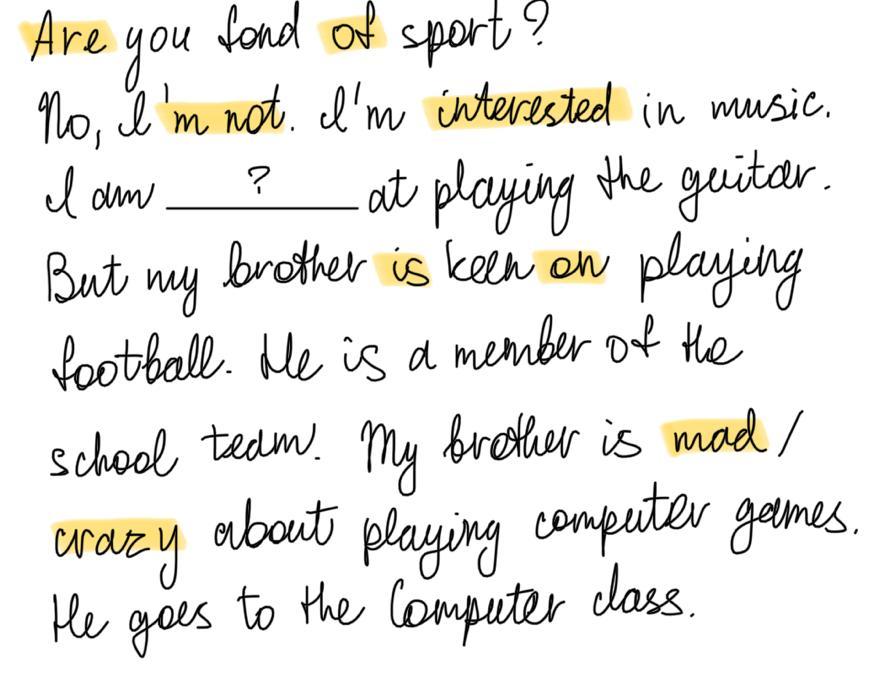 Are you fond of sport?
No, I'm not. I'm interested in music.
I am ___?___ at playing the guitar.
But my brother is keen on playing
football. He is a member of the
school team. My brother is mad/
crazy about playing computer games.
He goes to the Computer class.